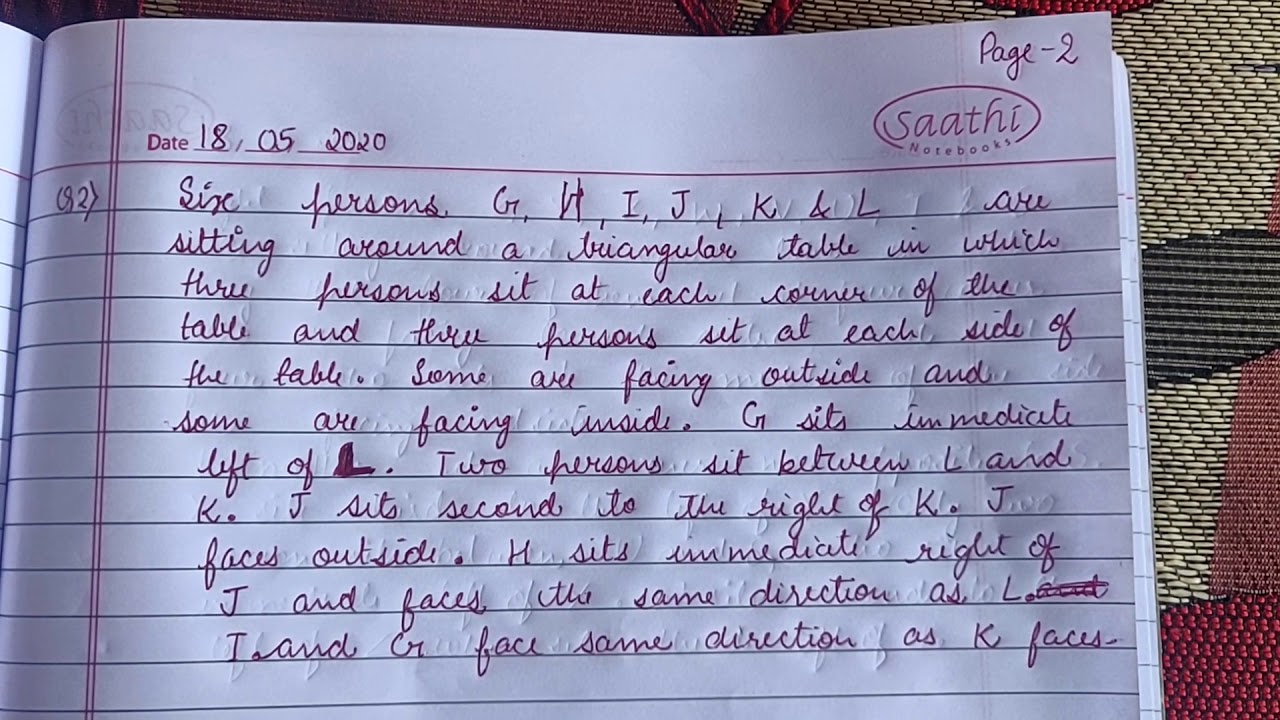 Page-2
saathi
Notebooks
Date 18, 05 2020
Q2) Six persons. G, H, I, J, K & L are
sitting around a triangular table in which
three persons sit at each corner of the
table and three persons sit at each side of
the table. Some are facing outside and
some are facing inside. G sits immediate
left of L. Two persons sit between L and
K. J sits second to the right of K. J
faces outside. H sits immediate right of
J and faces the same direction as L.
I and G face same direction as K faces.